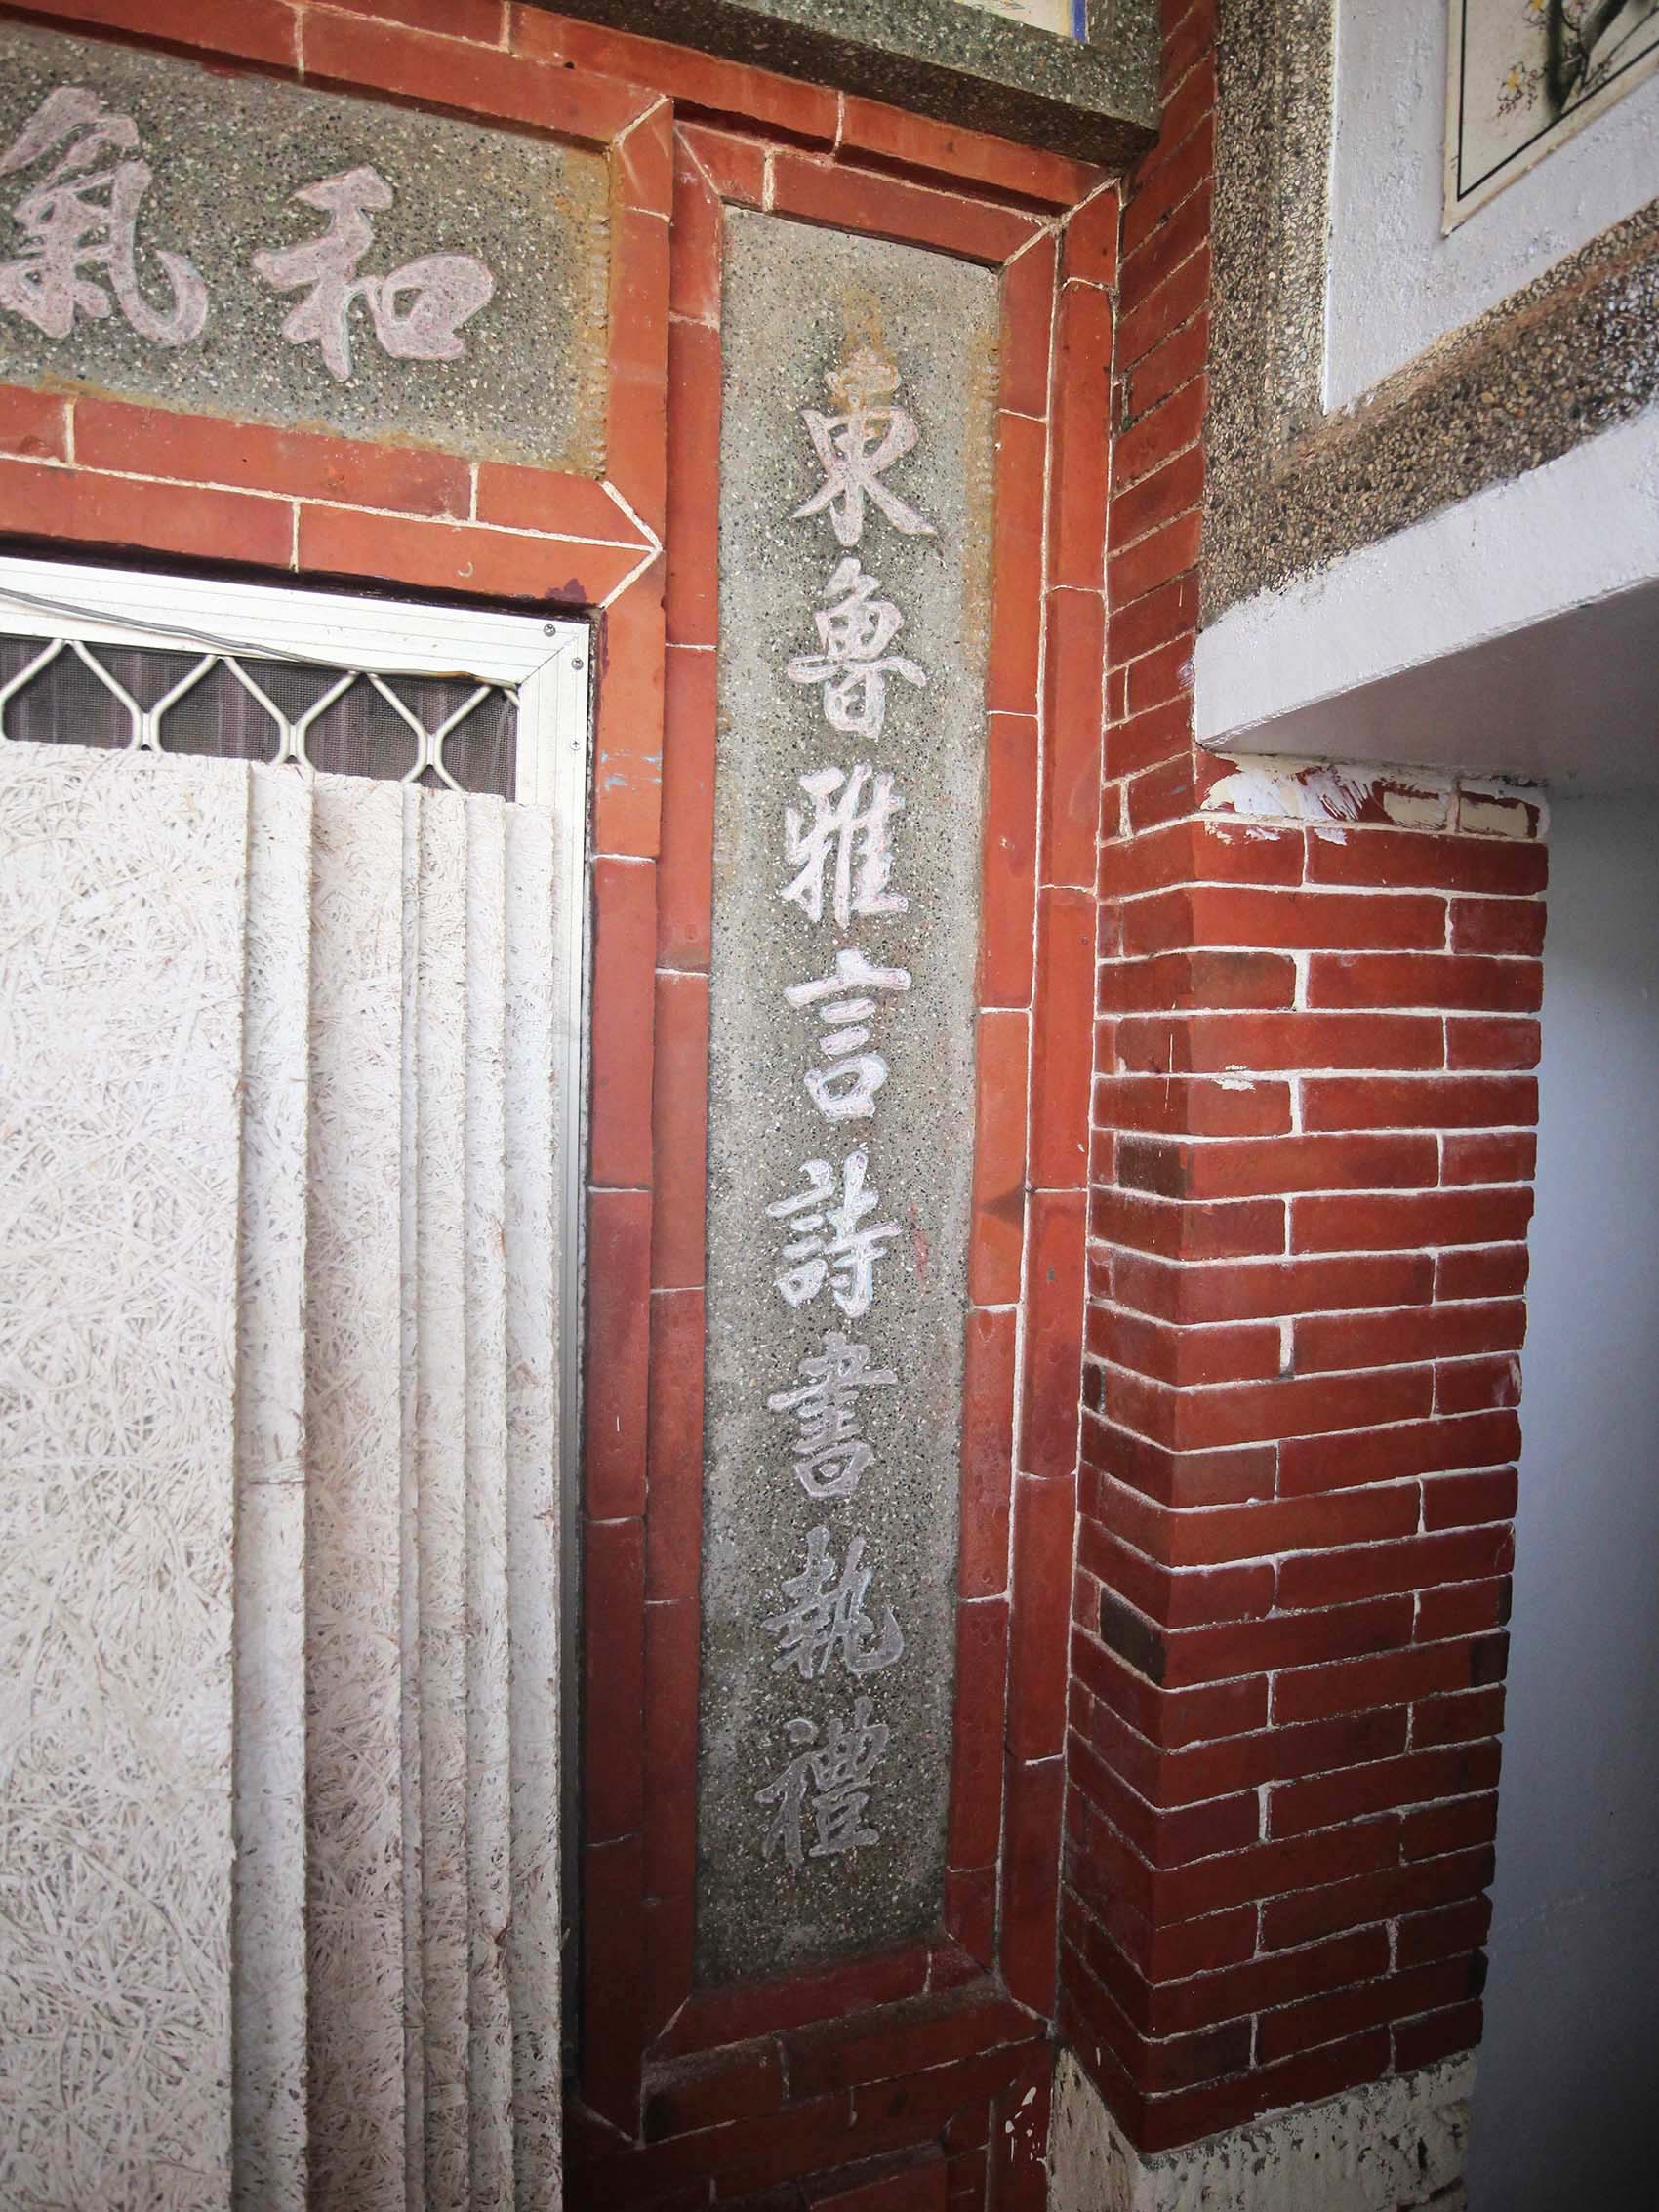 和氣
東魯雅言詩書執禮